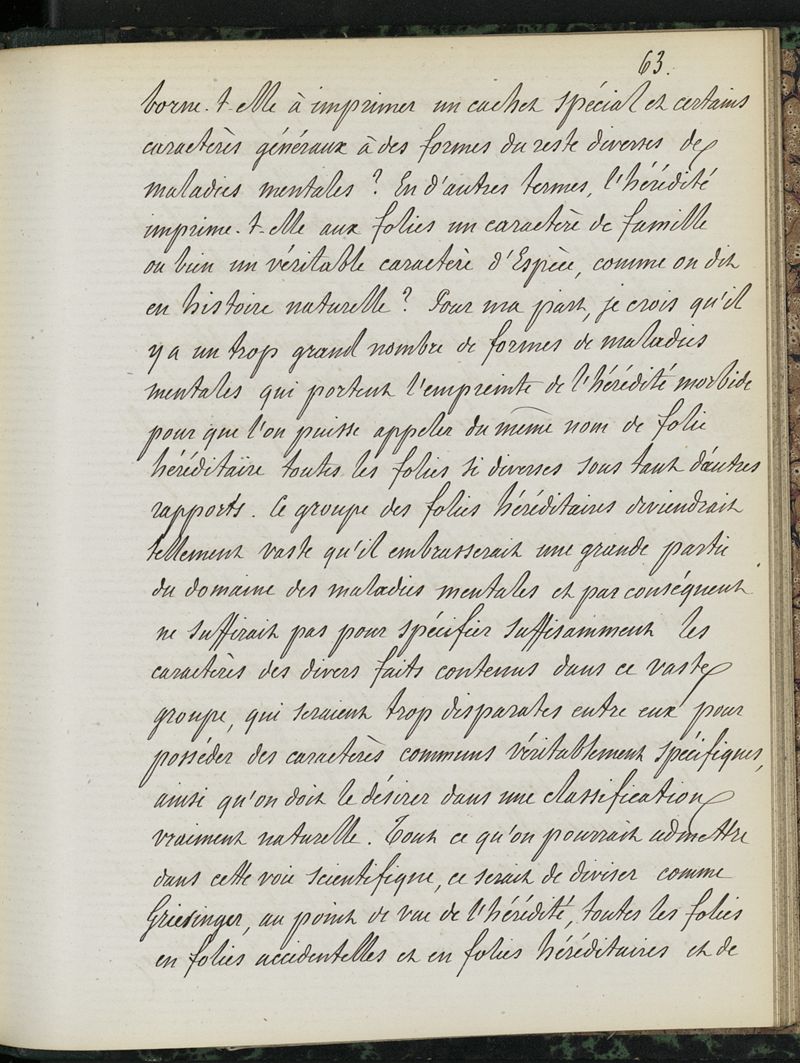 63.
borne-t-elle à imprimer un cachet spécial et certains
caractères généraux à des formes du reste diverses de
maladies mentales ? En d'autres termes, l'hérédité
imprime-t-elle aux folies un caractère de famille
ou bien un véritable caractère d'Espèce, comme on dit
en histoire naturelle ? Pour ma part, je crois qu'il
y a un trop grand nombre de formes de maladies
mentales qui portent l'empreinte de l'hérédité morbide
pour que l'on puisse appeler du même nom de folie
héréditaire toutes les folies si diverses sous tant d'autres
rapports. Ce groupe des folies héréditaires deviendrait
tellement vaste qu'il embrasserait une grande partie
du domaine des maladies mentales et par conséquent
ne suffirait pas pour spécifier suffisamment les
caractères des divers faits contenus dans ce vaste
groupe, qui seraient trop disparates entre eux pour
posséder des caractères communs véritablement spécifiques,
ainsi qu'on doit le désirer dans une classification
vraiment naturelle. Tout ce qu'on pourrait admettre
dans cette voie scientifique, ce serait de diviser comme
Griesinger, au point de vue de l'hérédité, toutes les folies
en folies accidentelles et en folies héréditaires et de